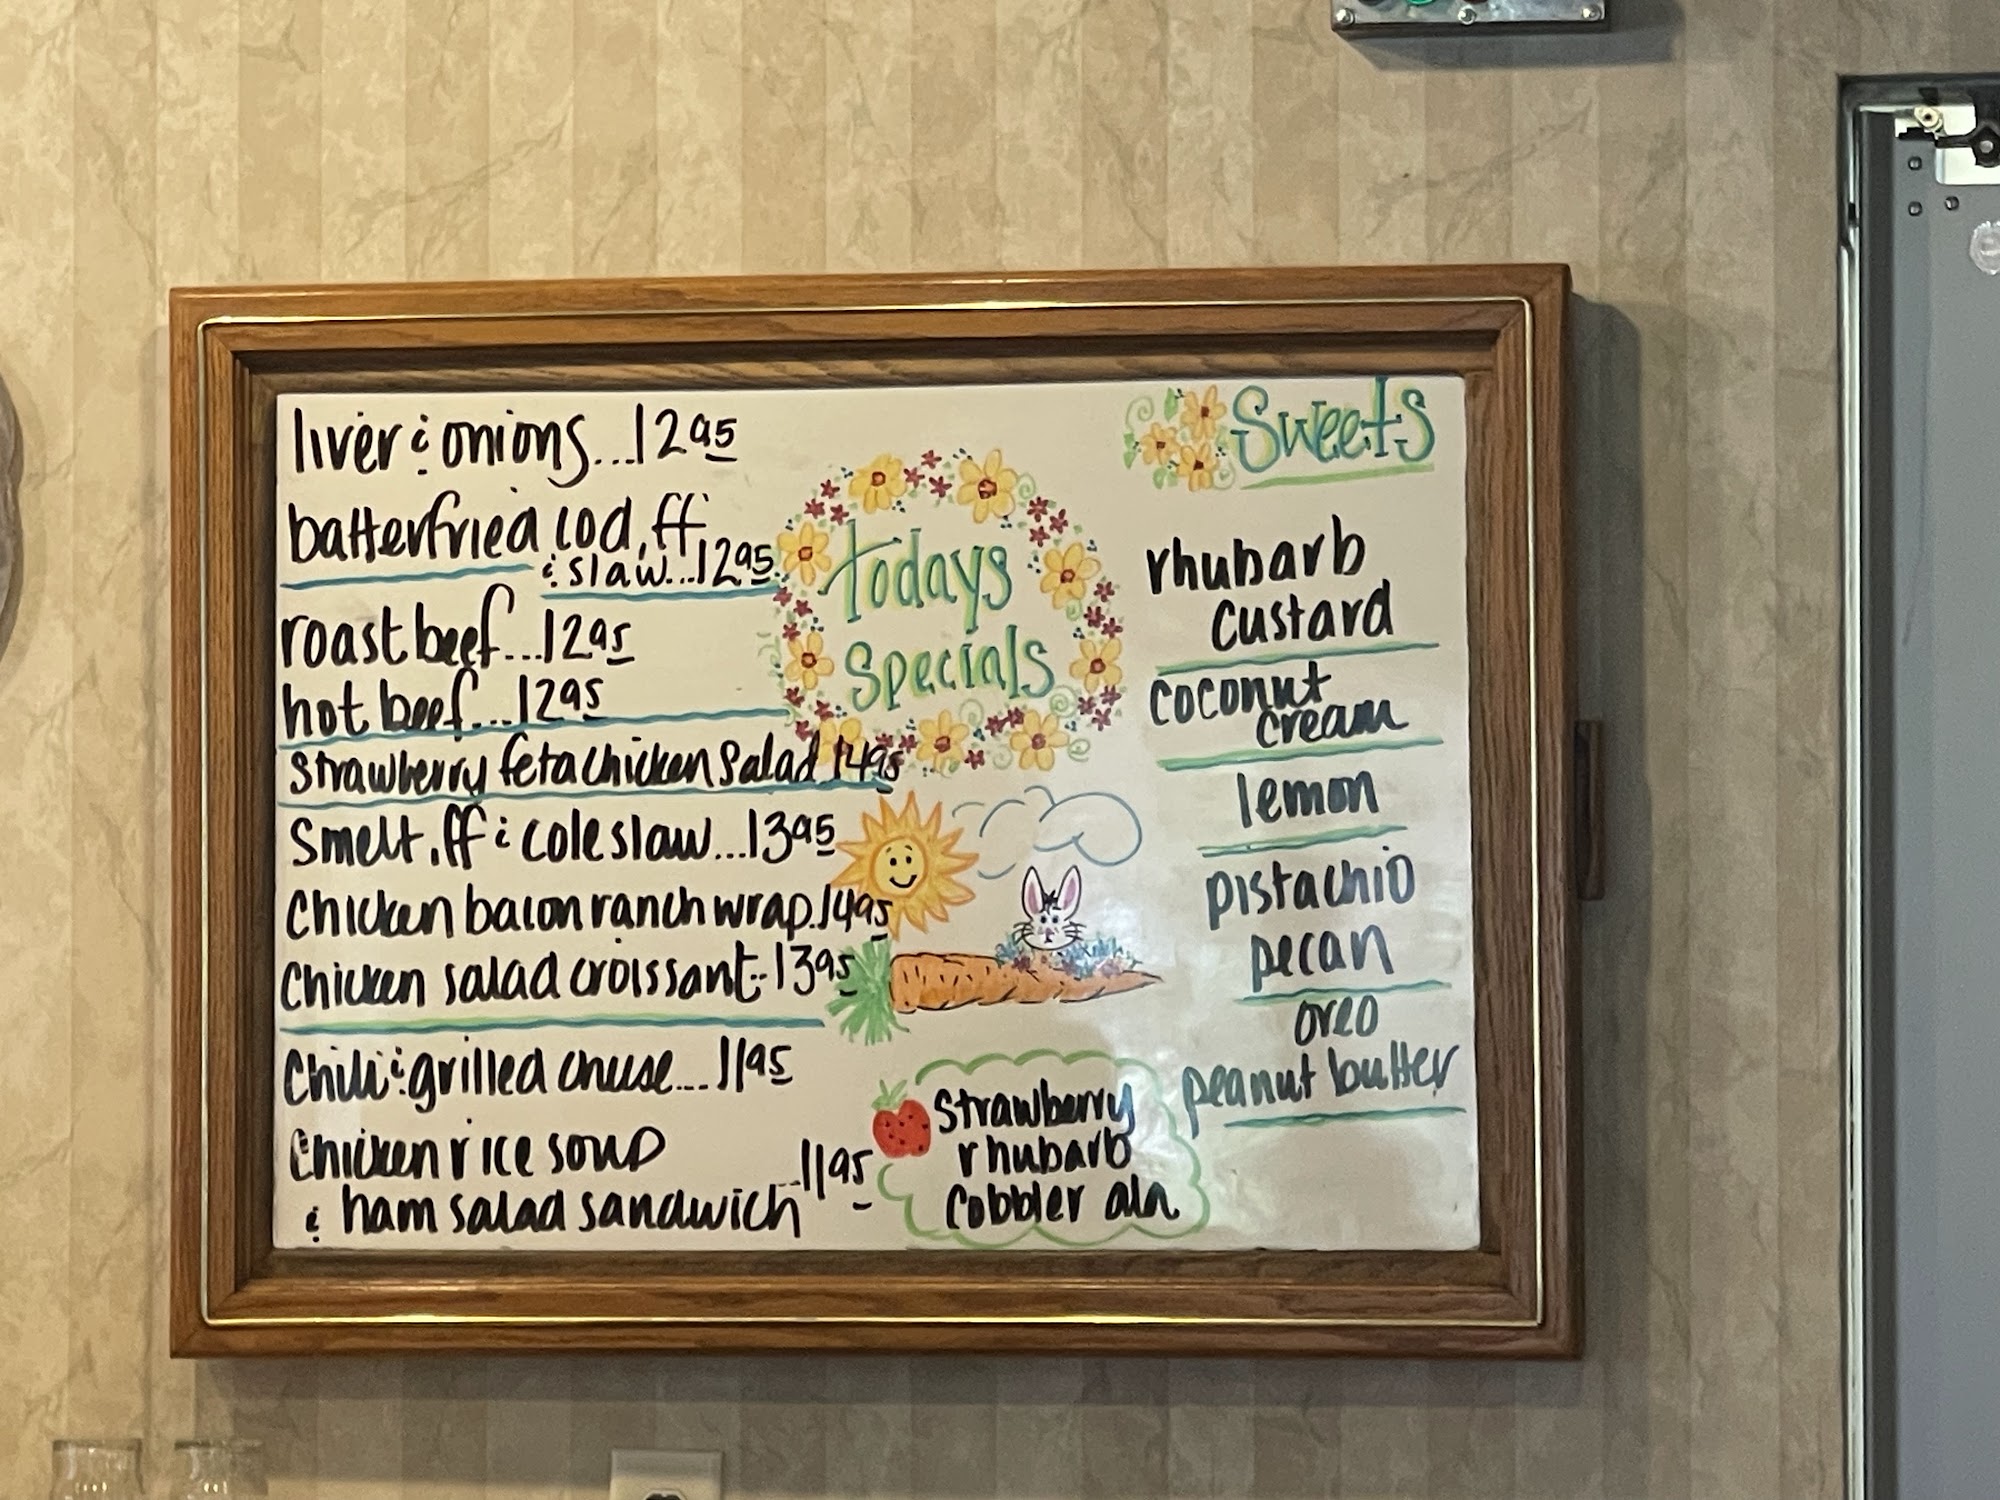 liver & onions...12 95
batterfried cod, ff
& slaw...12 95
roast beef...12 95
hot beef...12 95
strawberry feta chicken salad 14 95
smelt, ff & coleslaw...13 95
chicken bacon ranch wrap..14 95
chicken salad croissant..13 95
chili & grilled cheese...11 95
chicken rice soup
& ham salad sandwich ...11 95
todays
specials
strawberry
rhubarb
cobbler ala
Sweets
rhubarb
custard
coconut
cream
lemon
pistachio
pecan
oreo
peanut butter